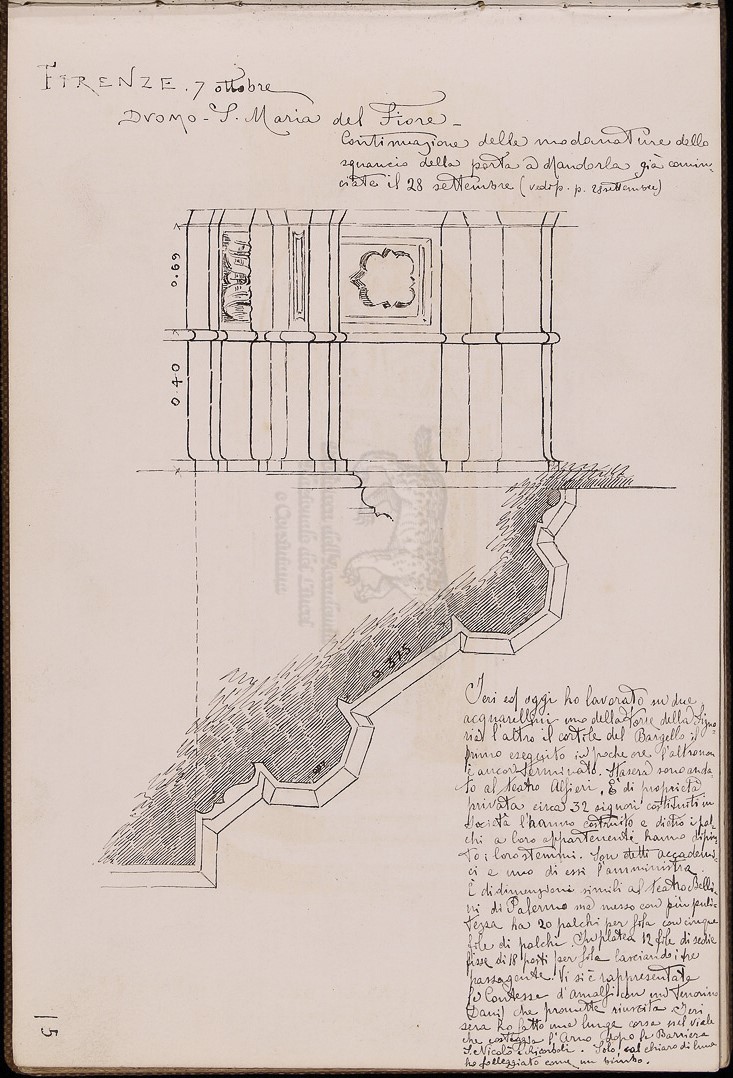 FIRENZE. 7 ottobre
DVOMO - S. Maria del Fiore -
Continuazione delle modanature dello
sguancio della porta a Mandorla già comin-
ciate il 28 settembre (vedi p. p. 28 settembre)
0.69
0 40
0.325
Ieri ed oggi ho lavorato su due
acquarellini uno della Torre della Signo-
ria l'altro il cortile del Bargello il
primo eseguito in poche ore l'altro non
è ancor terminato. Stasera sono anda-
to al teatro Alfieri. È di proprietà
privata circa 32 signori costituiti in
società l'hanno costruito e dietro i pal-
chi a loro appartenenti hanno dipin-
to i loro stemmi. Son detti accademi-
ci e uno di essi l'amministra.
È di dimensioni simili al teatro Belli-
ni di Palermo ma messo con più puli-
tezza ha 20 palchi per fila con cinque
file di palchi. In platea 12 file di sedie
fisse di 18 posti per fila lasciando i tre
passa gente. Vi si è rappresentata
la Contessa d'Amalfi con un Tenorino
Dani che promette riuscita. Ieri
sera ho fatto una lunga corsa nel viale
che costeggia l'Arno dopo la Barriera
S. Nicolò a Ricorboli. Solo, al chiaro di luna
ho folleggiato come un bimbo.
15